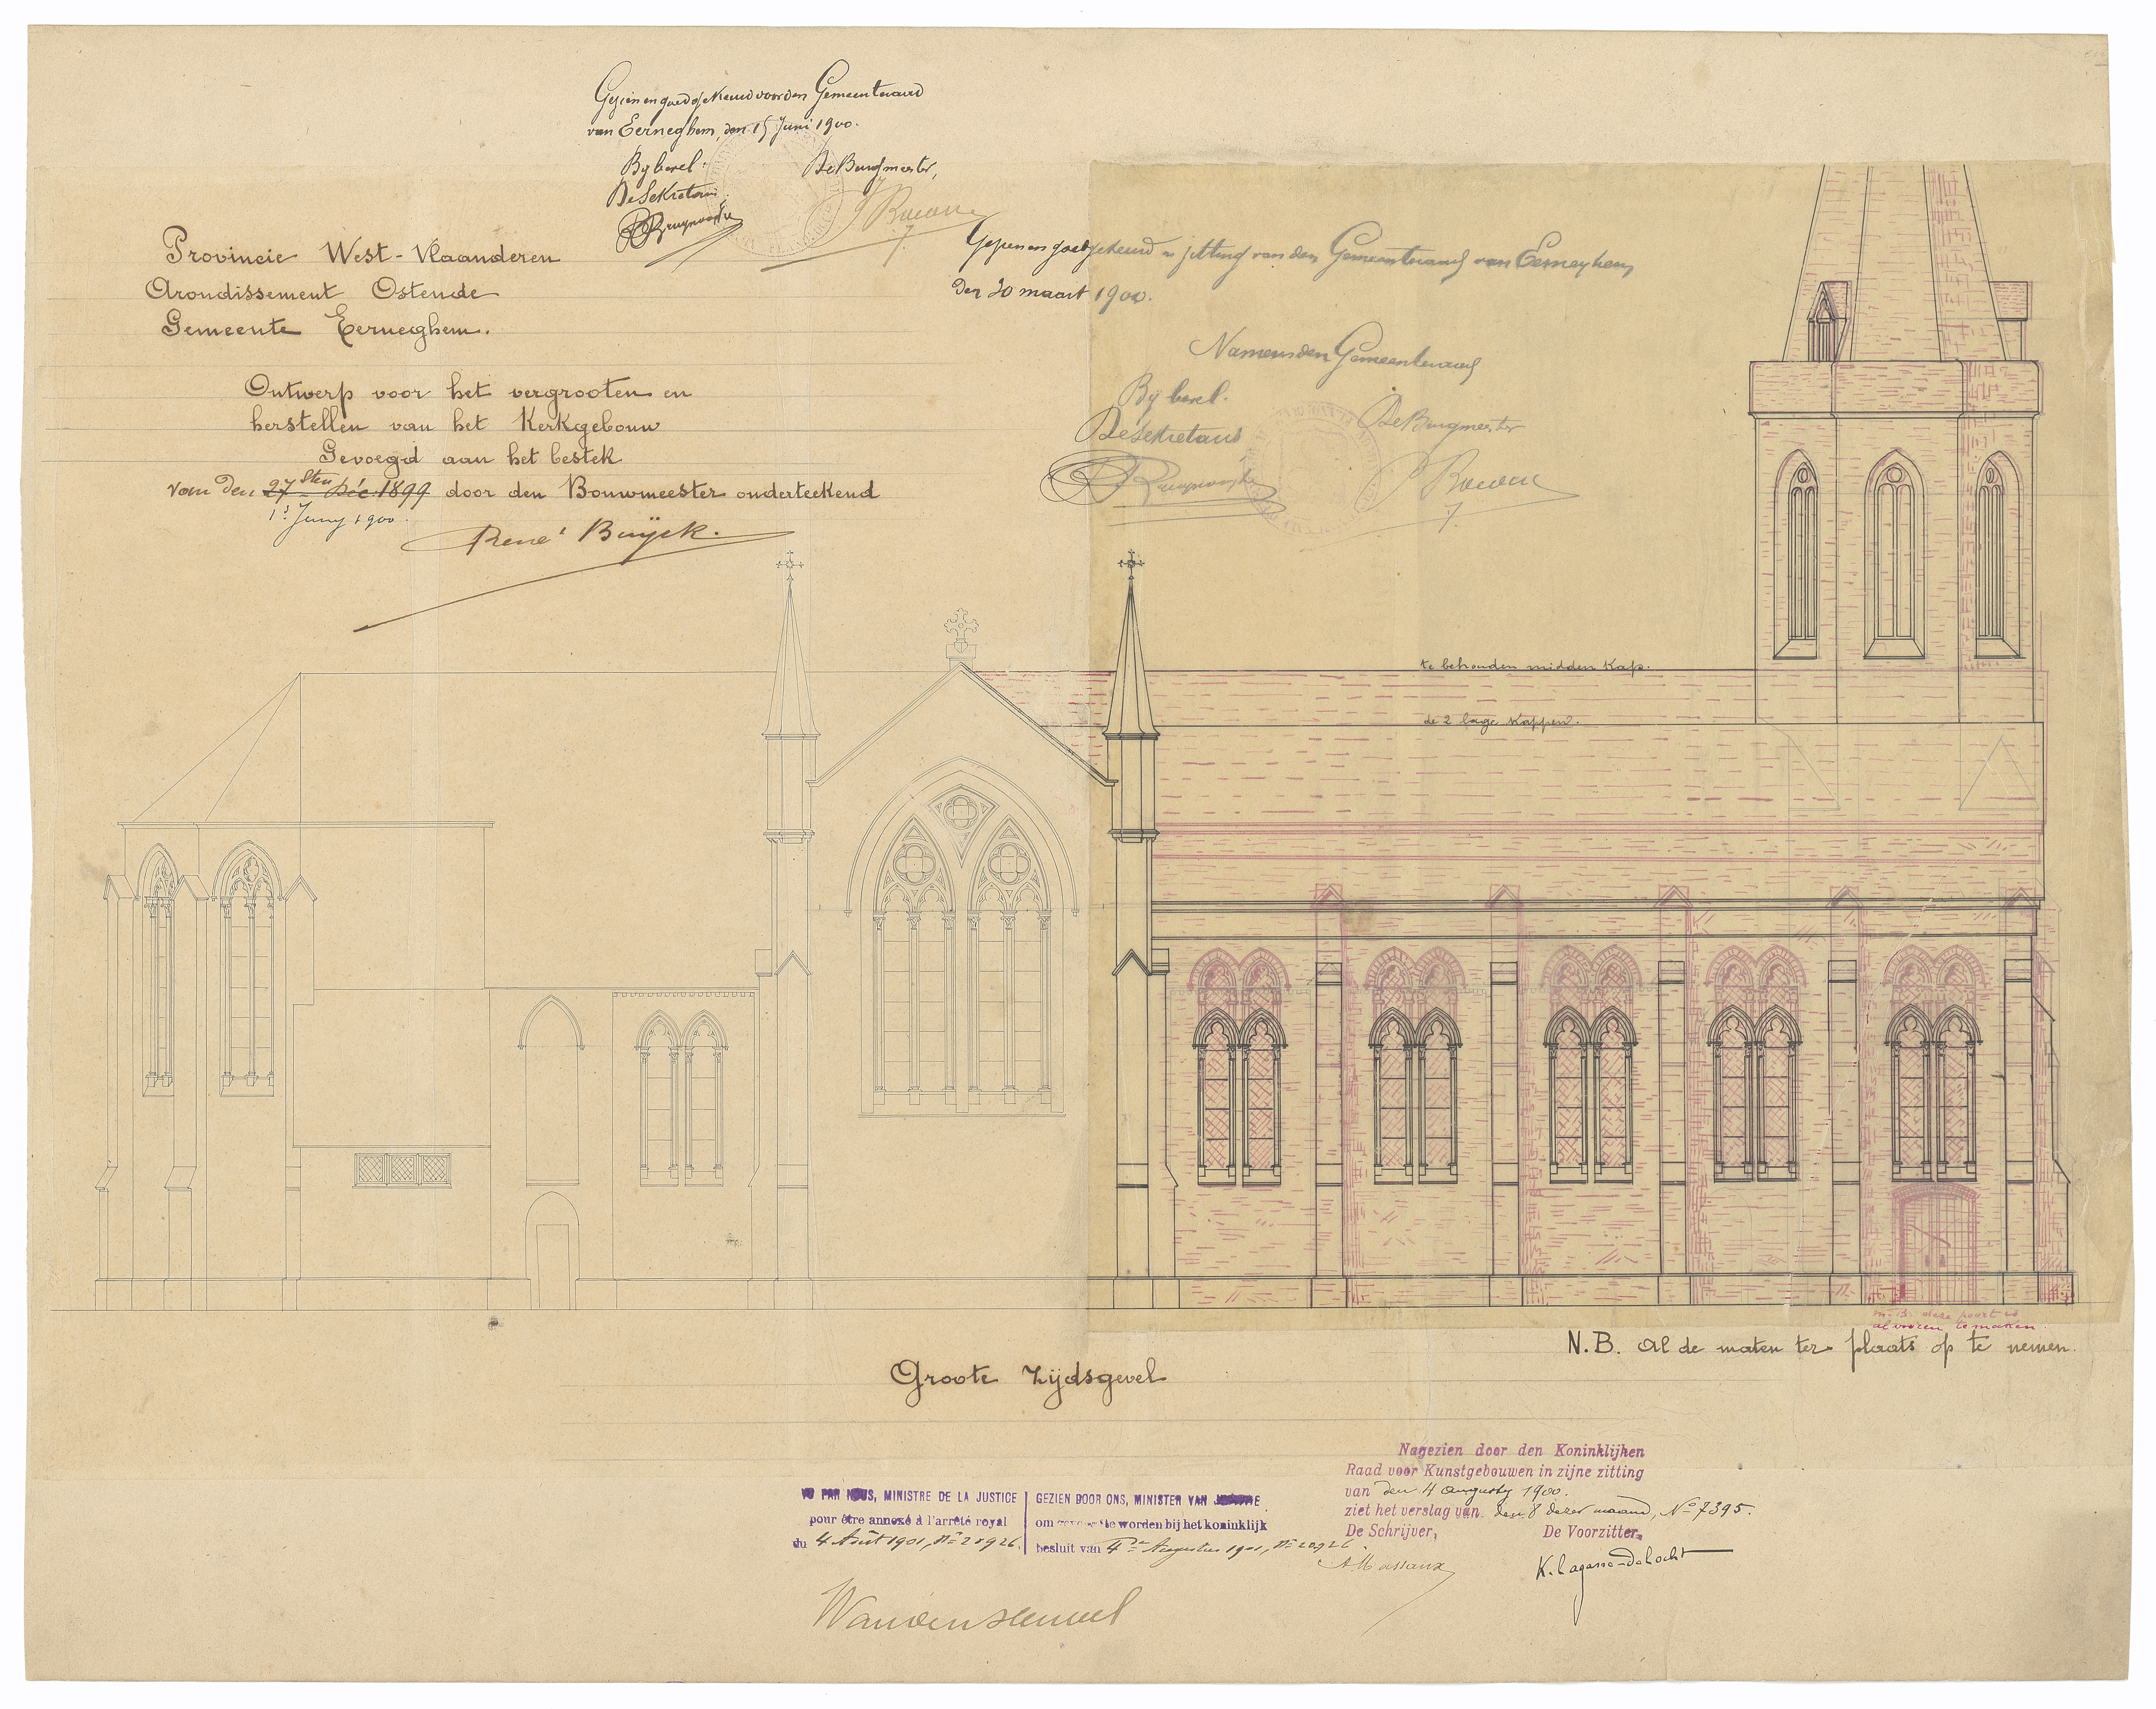 Gezien en goedgekeurd voor den Gemeenteraad
van Eerneghem, den 15 Juni 1900.
By bevel:
De Sekretaris,
De Burgmeester,
Provincie West-Vlaanderen
Arondissement Ostende
Gemeente Eerneghem.
Ontwerp voor het vergrooten en
herstellen van het Kerkgebouw
Gevoegd aan het bestek
van den 27sten Déc. 1899 door den Bouwmeester onderteekend
1s Juny 1900.
René Buÿck.
Gezien en goedgekeurd in zitting van den Gemeenteraad van Eerneghem
den 20 maart 1900.
Namens den Gemeenteraad
By bevel.
De Sekretaris
De Burgmeester
te behouden midden kap.
de 2 lage kappen.
N.B. deze poort is
al vooren te maken.
N.B. Al de maten ter plaats op te nemen.
Groote Zijdsgevel
VU PAR NOUS, MINISTRE DE LA JUSTICE
pour être annexé à l'arrêté royal
du 4 Août 1901, Nº 20926.
GEZIEN DOOR ONS, MINISTER VAN JUSTITIE
om te worden bij het koninklijk
besluit van 4den Augustus 1901, Nº 20926.
Nagezien door den Koninklijken
Raad voor Kunstgebouwen in zijne zitting
van den 4 augusty 1900.
ziet het verslag van den 8 dezer maand, Nº 7395.
De Schrijver,
De Voorzitter,
A. Massaux
K. Lagasse-Delocht